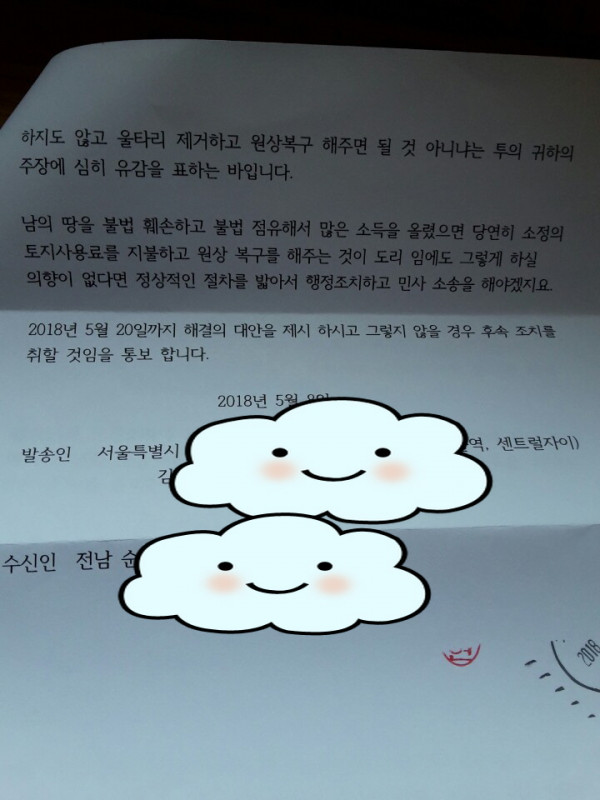 하지도 않고 울타리 제거하고 원상복구 해주면 될 것 아니냐는 투의 귀하의
주장에 심히 유감을 표하는 바입니다.
남의 땅을 불법 훼손하고 불법 점유해서 많은 소득을 올렸으면 당연히 소정의
토지사용료를 지불하고 원상 복구를 해주는 것이 도리 임에도 그렇게 하실
의향이 없다면 정상적인 절차를 밟아서 행정조치하고 민사 소송을 해야겠지요.
2018년 5월 20일까지 해결의 대안을 제시 하시고 그렇지 않을 경우 후속 조치를
취할 것임을 통보 합니다.
2018년 5월
발송인 서울특별시 역, 센트럴자이)
김
수신인 전남 순
2018